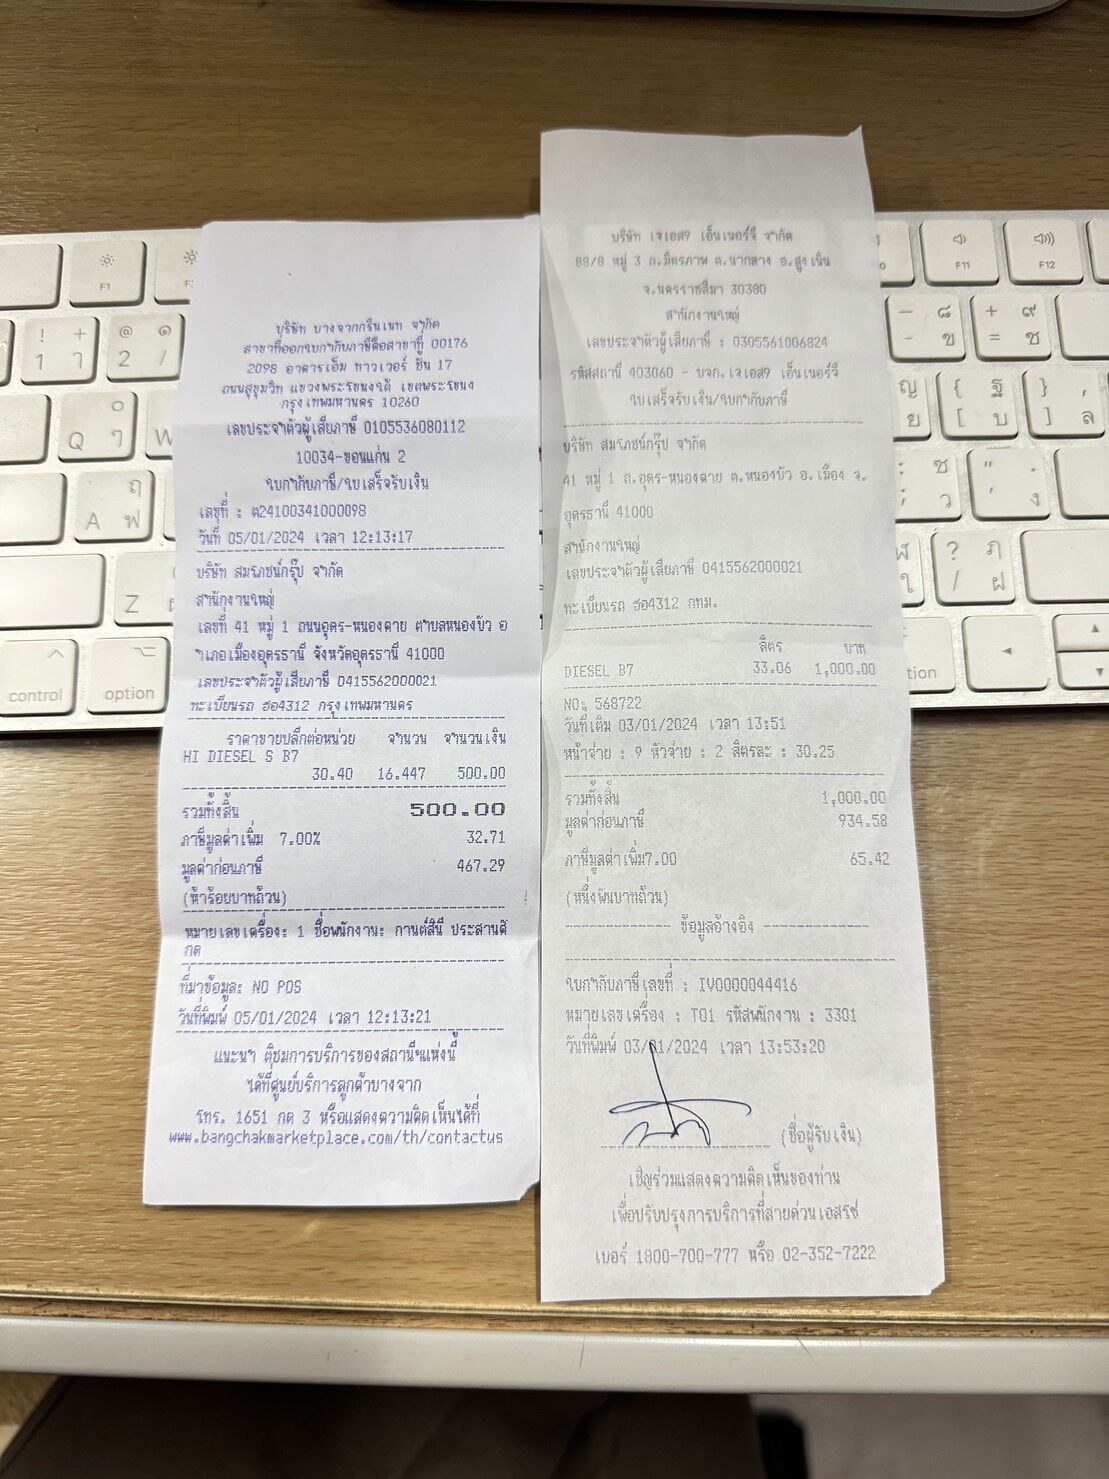 บริษัท บางจากกรีนเนท จำกัด
สาขาที่ออกใบกำกับภาษีคือสาขาที่ 00176
2098 อาคารเอ็ม ทาวเวอร์ ชั้น 17
ถนนสุขุมวิท แขวงพระโขนงใต้ เขตพระโขนง
กรุงเทพมหานคร 10260
เลขประจำตัวผู้เสียภาษี 0105536080112
10034-ขอนแก่น 2
ใบกำกับภาษี/ใบเสร็จรับเงิน
เลขที่ : ต24100341000098
วันที่ 05/01/2024 เวลา 12:13:17
บริษัท สมโภชน์กรุ๊ป จำกัด
สำนักงานใหญ่
เลขที่ 41 หมู่ 1 ถนนอุดร-หนองคาย ตำบลหนองบัว อ
ำเภอเมืองอุดรธานี จังหวัดอุดรธานี 41000
เลขประจำตัวผู้เสียภาษี 0415562000021
ทะเบียนรถ ฮอ4312 กรุงเทพมหานคร
ราคาขายปลีกต่อหน่วย จำนวน จำนวนเงิน
HI DIESEL S B7
30.40 16.447 500.00
รวมทั้งสิ้น 500.00
ภาษีมูลค่าเพิ่ม 7.00% 32.71
มูลค่าก่อนภาษี 467.29
(ห้าร้อยบาทถ้วน)
หมายเลขเครื่อง: 1 ชื่อพนักงาน: กานต์สินี ประสานดี
กต
ที่มาข้อมูล: NO POS
วันที่พิมพ์ 05/01/2024 เวลา 12:13:21
แนะนำ ติชมการบริการของสถานีฯแห่งนี้
ได้ที่ศูนย์บริการลูกค้าบางจาก
โทร. 1651 กด 3 หรือแสดงความคิดเห็นได้ที่
www.bangchakmarketplace.com/th/contactus
บริษัท เจเอส9 เอ็นเนอร์จี จำกัด
88/8 หมู่ 3 ถ.มิตรภาพ ต.นากลาง อ.สูงเนิน
จ.นครราชสีมา 30380
สำนักงานใหญ่
เลขประจำตัวผู้เสียภาษี : 0305561006824
รหัสสถานี 403060 - บจก.เจเอส9 เอ็นเนอร์จี
ใบเสร็จรับเงิน/ใบกำกับภาษี
บริษัท สมโภชน์กรุ๊ป จำกัด
41 หมู่ 1 ถ.อุดร-หนองคาย ต.หนองบัว อ.เมือง จ.
อุดรธานี 41000
สำนักงานใหญ่
เลขประจำตัวผู้เสียภาษี 0415562000021
ทะเบียนรถ ฮอ4312 กทม.
ลิตร บาท
DIESEL B7 33.06 1,000.00
NO: 568722
วันที่เติม 03/01/2024 เวลา 13:51
หน้าจ่าย : 9 หัวจ่าย : 2 ลิตรละ : 30.25
รวมทั้งสิ้น 1,000.00
มูลค่าก่อนภาษี 934.58
ภาษีมูลค่าเพิ่ม7.00 65.42
(หนึ่งพันบาทถ้วน)
ข้อมูลอ้างอิง
ใบกำกับภาษีเลขที่ : IV0000044416
หมายเลขเครื่อง : T01 รหัสพนักงาน : 3301
วันที่พิมพ์ 03/01/2024 เวลา 13:53:20
(ชื่อผู้รับเงิน)
เชิญร่วมแสดงความคิดเห็นของท่าน
เพื่อปรับปรุงการบริการที่สายด่วนเอสโซ่
เบอร์ 1800-700-777 หรือ 02-352-7222